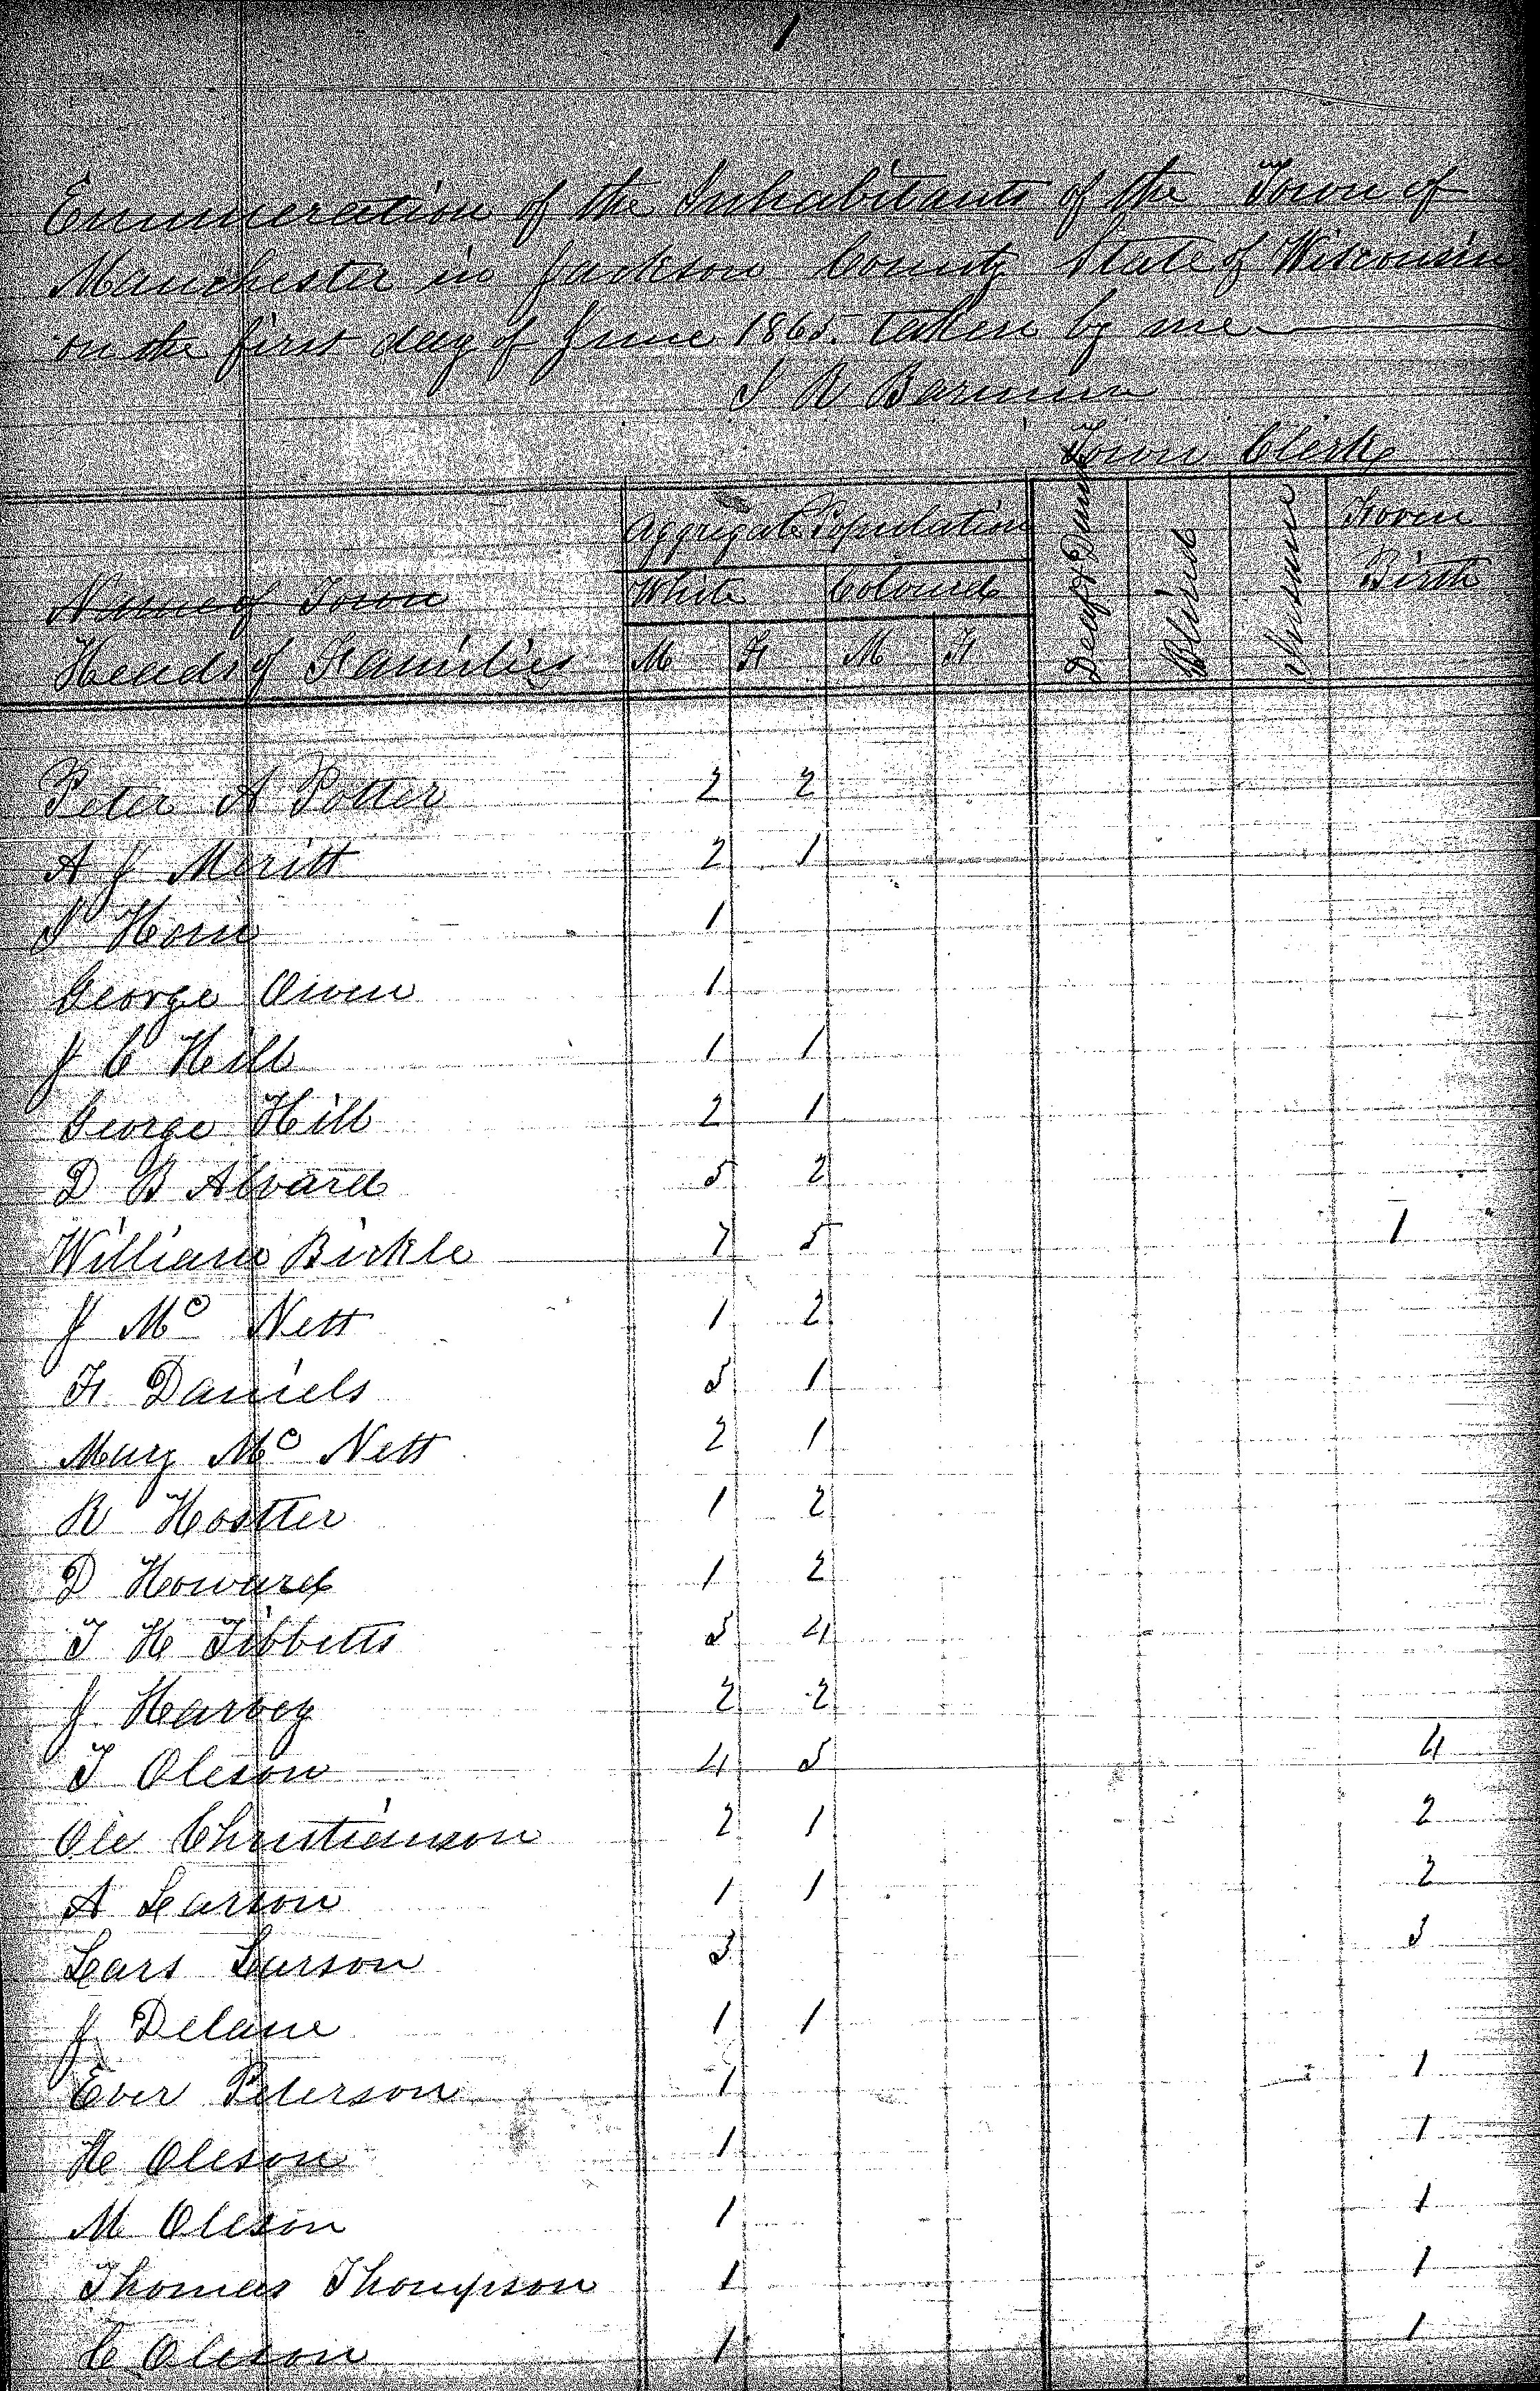 1
Enumeration of the Inhabitants of the Town of
Manchester in Jackson County State of Wisconsin
on the first day of June 1865. taken by me
R Barnum
Town Clerk
Aggregate Population Deaf & Dumb Blind Insane Foren
Name of Town White Coloured Birth
Heads of Families M F M F
Peter A Potter 2 2
A J Meritt 2 1
Horn 1
George Owen 1
J C Hill 1 1
George Hill 2 1
D B Alvard 5 2
William Bickle 7 5 1
J Mc Nett 1 2
F. Daniels 1
Mary Mc Nett 2 1
R Hostter 1 2
D Howard 1 2
T H Tibbetts 4
J. Harvey 2 2
T Oleson 4 4
Ole Christianson 2 1 2
A Larson 1 1 2
Lars Larson 3 3
J. Delane 1 1
Ever Peterson 1 1
H Oleson 1 1
M Oleson 1 1
Thomas Thompson 1 1
C Oleson 1 1